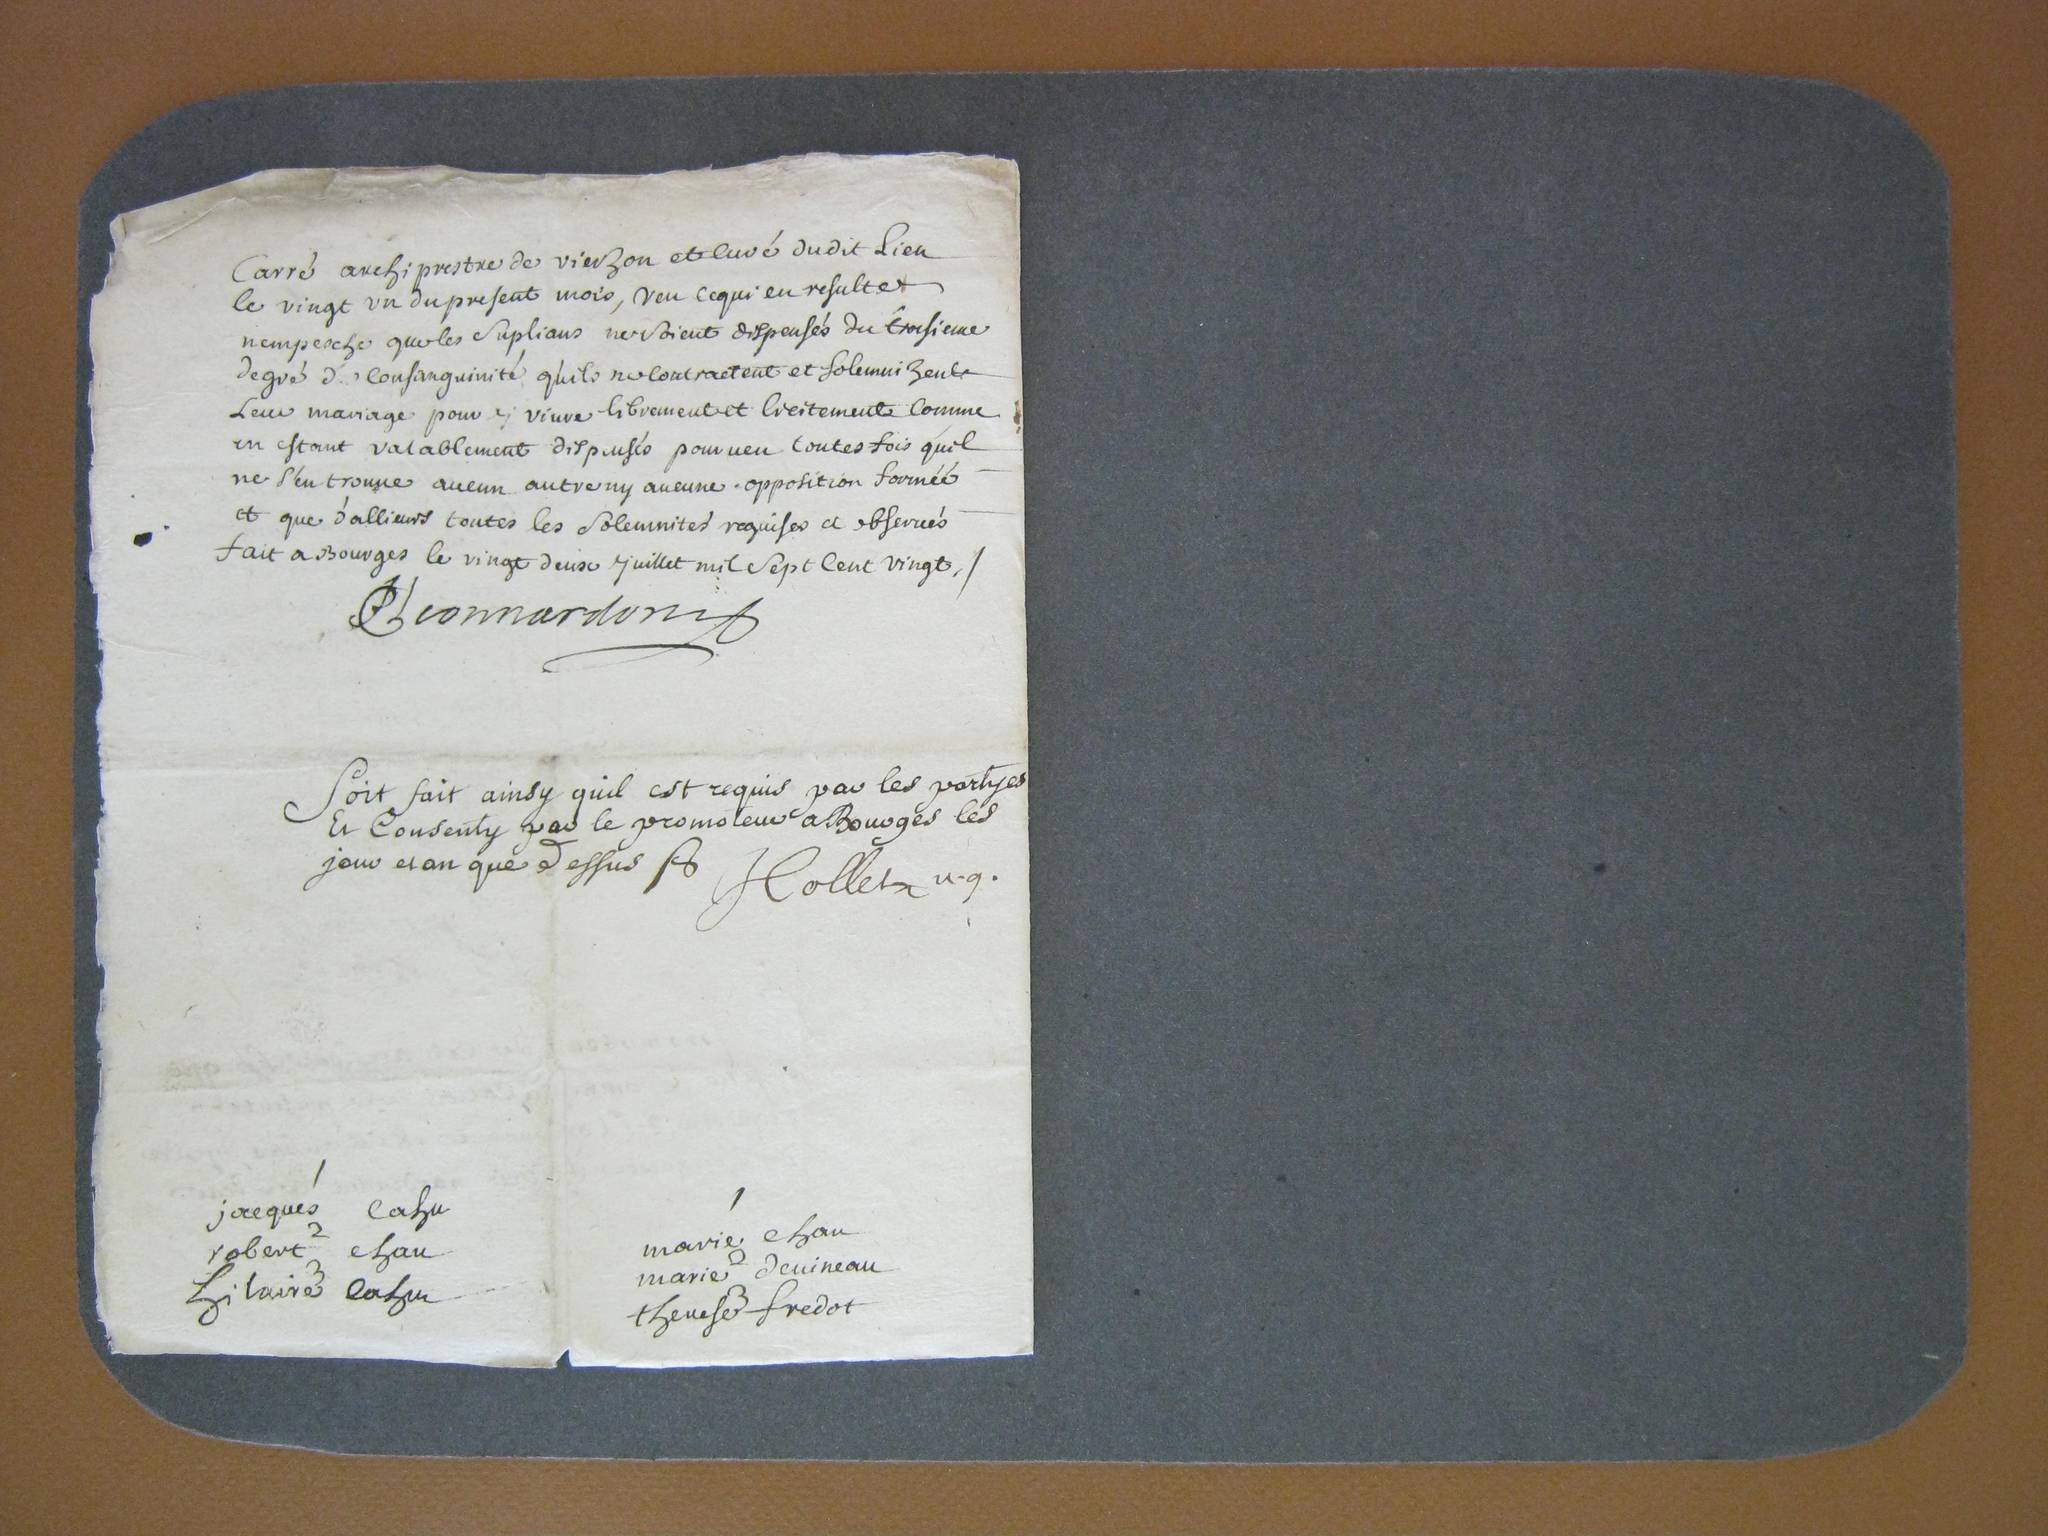 Carré archiprestre de vierzon et Curé dudit Lieu
le vingt vn du present mois, veu ce qui en resulte
nempesche que les suplians ne soient dispensés du troisieme
degré de consanguinité quils ne contractent et solemnizent
Leur mariage pour y viure librement et licitement comme
en estant valablement dispensés pourueu toutes fois quil
ne s'en trouue aucun autre ny aucune opposition formée
et que dallieurs toutes les solemnités requises et obserués
fait a Bourges le vingt deux juillet mil sept cent vingt./
Leonnardon
Soit fait ainsy quil est requis par les partyes
Et Consenty par le promoteur a Bourges les
jour et an que dessus Hollet v. g.
1 1
jacques cahu marie chau
2 2
robert chau marie deuineau
3 3
hilaire cahu therese fredot